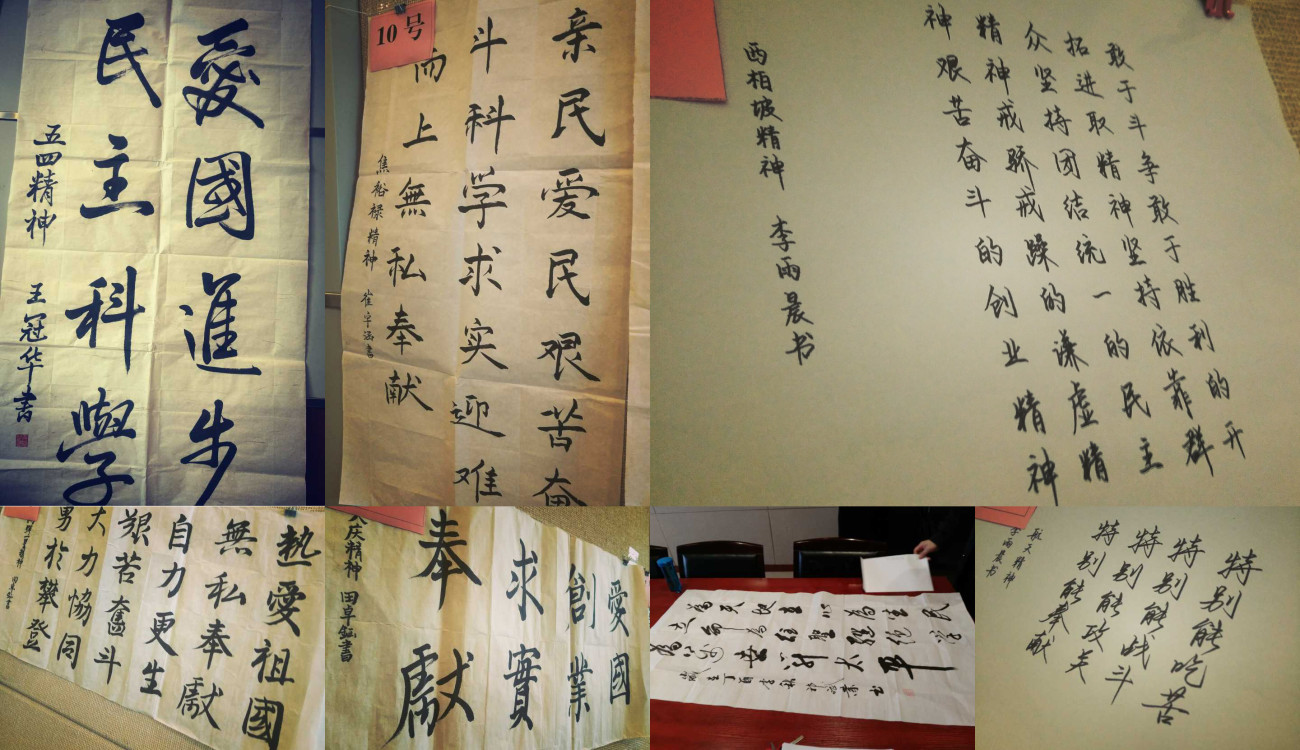 愛國進步
民主科學
五四精神 王冠华書
10号
亲民爱民艰苦奋
斗科学求实迎难
而上無私奉献
焦裕禄精神 崔宇涵書
敢于斗争敢于胜利的开
拓进取精神坚持依靠群
众坚持团结统一的民主
精神戒骄戒躁的谦虚精
神艰苦奋斗的创业精神
西柏坡精神 李雨晨书
熱愛祖國
無私奉獻
自力更生
艱苦奮斗
大力恊同
勇於攀登
愛國
創業
求實
奉獻
大庆精神 田卓鈺書
為天地立心為生民
立命為往聖繼絕學
為万世開太平
特别能吃苦
特别能战斗
特别能攻关
特别能奉献
航天精神
李雨晨书